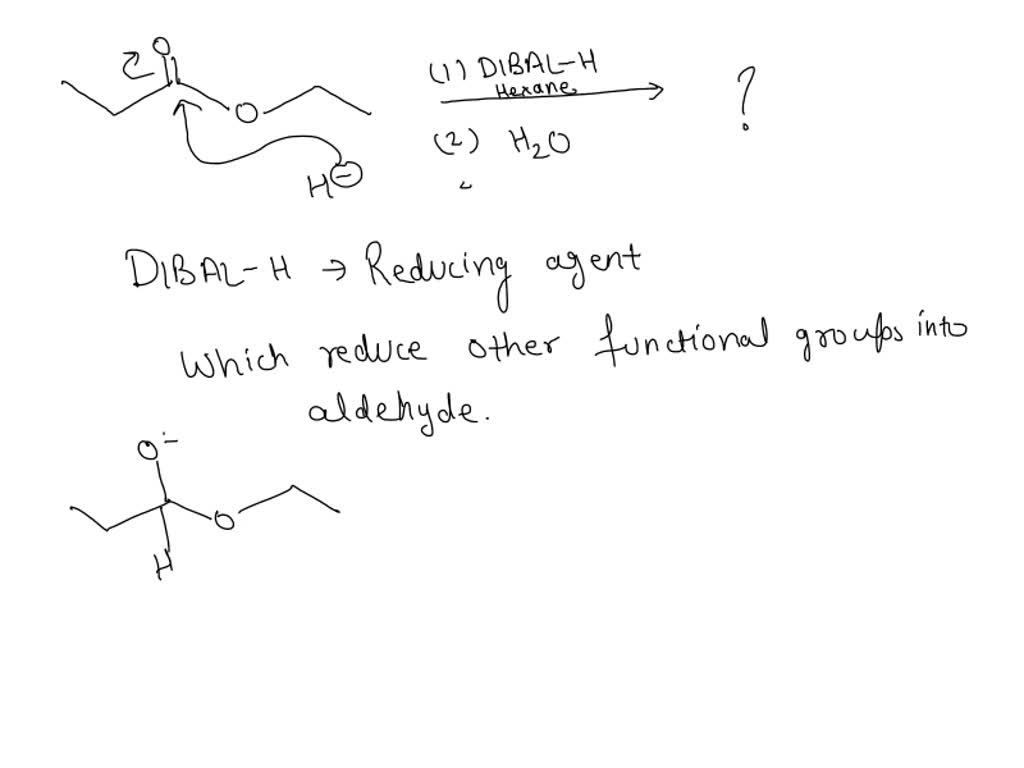 O
O
H⊖
(1) DIBAL-H
Hexane
(2) H₂O
?
DIBAL-H → Reducing agent
Which reduce other functional groups into
aldehyde.
O⁻
O
H